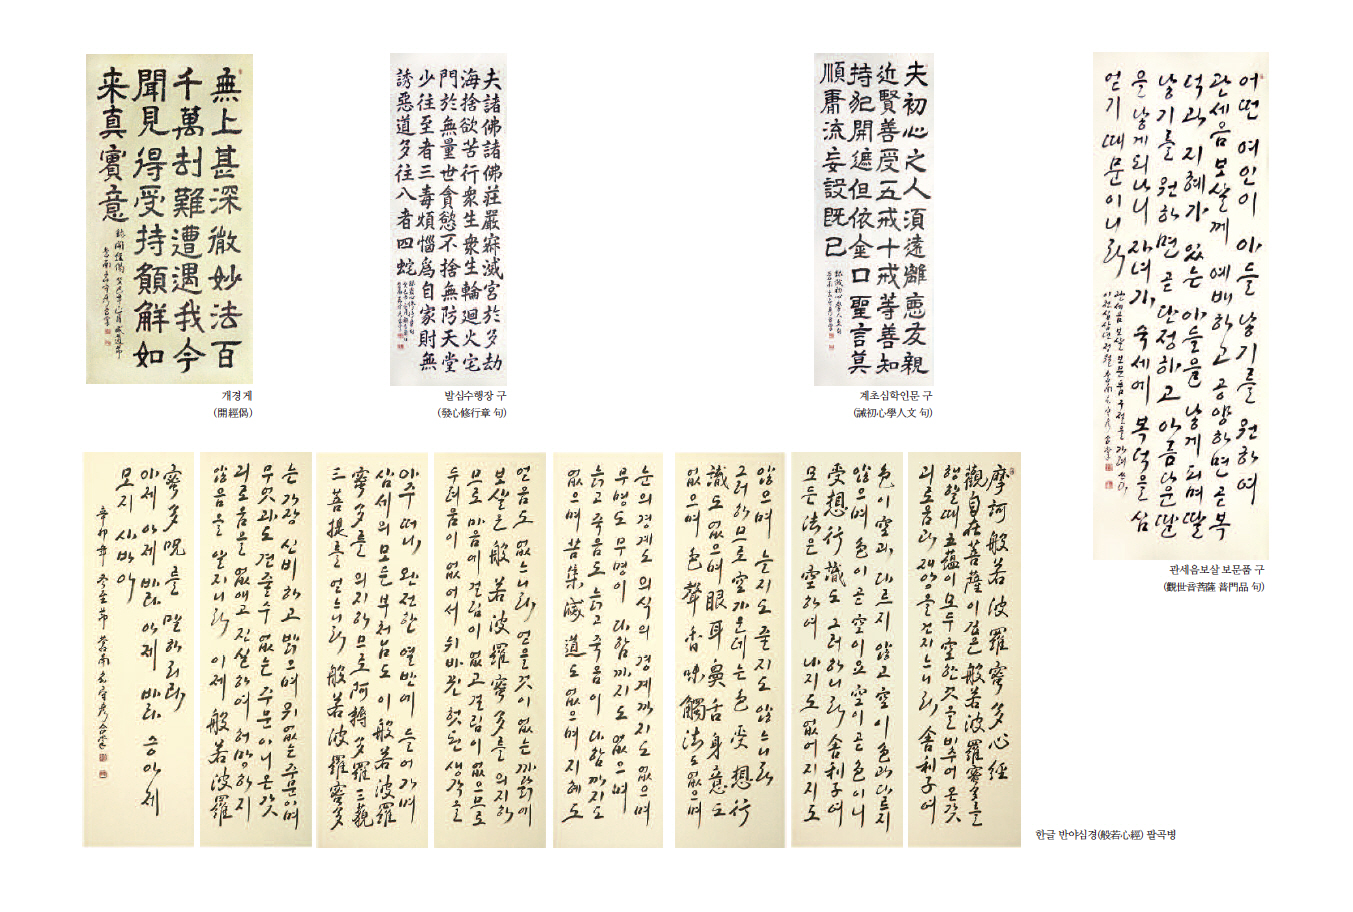 無上甚深微妙法百
千萬刦難遭遇我今
聞見得受持願解如
来真實意
錄開經偈
개경게
(開經偈)
夫諸佛諸佛莊嚴寂滅宮於多劫
海捨欲苦行衆生衆生輪廻火宅
門於無量世貪慾不捨無防天堂
少往至者三毒煩惱爲自家財無
誘惡道多往八者四蛇
발심수행장 구
(發心修行章 句)
夫初心之人須遠離惡友親
近賢善受五戒十戒等善知
持犯開遮但依金口聖言莫
順庸流妄說既已
계초심학인문 구
(誡初心學人文 句)
어떤 여인이 아들 낳기를 원하여
관세음보살께 예배하고 공양하면 곧 복
덕과 지혜가 있는 아들을 낳게 되며 딸
낳기를 원하면 곧 단정하고 아름다운 딸
을 낳게 되나니 자녀가 숙세에 복덕을 심
얻기 때문이니라
관세음보살 보문품 구절을 가려 쓰다
관세음보살 보문품 구
(觀世音菩薩 普門品 句)
摩訶般若波羅蜜多心經
觀自在菩薩이 깊은 般若波羅蜜多를
행할때 五蘊이 모두 空한 것을 비추어 온갖
괴로움과 재앙을 건지느니라 舍利子여
色이 空과 다르지 않고 空이 色과 다르지
않으며 色이 곧 空이요 空이 곧 色이니
受想行識도 그러하니라 舍利子여
모든 法은 空하여 나지도 없어지지도
않으며 늘지도 줄지도 않느니라
그러하므로 空 가운데는 色 受想行
識도 없으며 眼耳鼻舌身意도
없으며 色聲香味觸法도 없으며
눈의 경계도 의식의 경계까지도 없으며
무명도 무명이 다함까지도 없으며
늙고 죽음도 늙고 죽음이 다함까지도
없으며 苦集滅道도 없으며 지혜도
얻음도 없느니라 얻을것이 없는 까닭에
보살은 般若波羅蜜多를 의지하
므로 마음에 걸림이 없고 걸림이 없으므로
두려움이 없어서 뒤바뀐 헛된 생각을
아주 떠나 완전한 열반에 들어가며
삼세의 모든 부처님도 이 般若波羅
蜜多를 의지하므로 阿耨多羅三藐
三菩提를 얻느니라 般若波羅蜜多
는 가장 신비하고 밝으며 위없는 주문이며
무엇과도 견줄수 없는 주문이니 온갖
괴로움을 없애고 진실하여 허망하지
않음을 알지니라 이제 般若波羅
蜜多呪를 말하리라
아제 아제 바라아제 바라승아제
모지 사바하
辛卯年
한글 반야심경(般若心經) 팔곡병